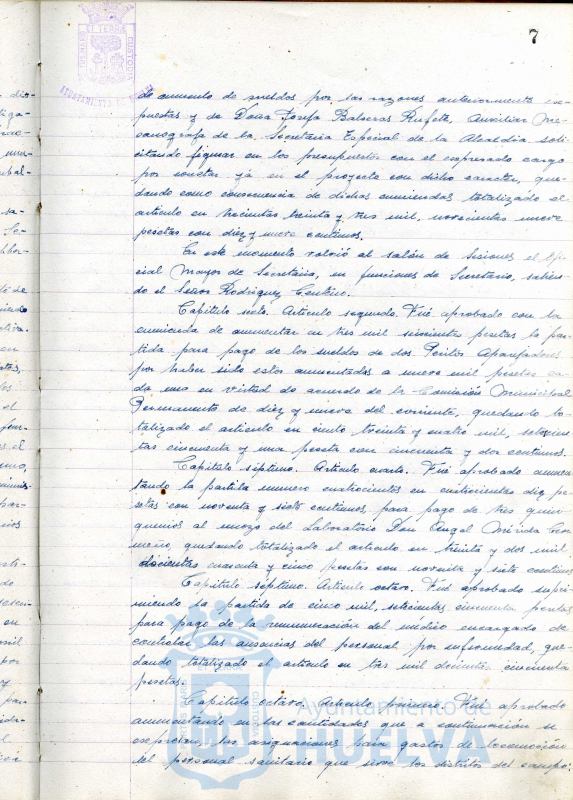 7
de aumento de sueldos por las razones anteriormente ex-
puestas y de Doña Josefa Balseras Rufete, Auxiliar Me-
canógrafa de la Secretaría Especial de la Alcaldía soli-
citando figurar en los presupuestos con el expresado cargo
por constar ya en el proyecto con dicho caracter, que-
dando como consecuencia de dichas enmiendas totalizado el
artículo en trecientas treinta y tres mil, novecientas nueve
pesetas con diez y nueve centimos.
En este momento volvió al salón de Sesiones el Ofi-
cial Mayor de Secretaría, en funciones de Secretario, salien-
do el Señor Rodriguez Centeno.
Capítulo sexto. Artículo segundo. Fué aprobado con la
enmienda de aumentar en tres mil pesetas la par-
tida para pago de los sueldos de dos Peritos Aparejadores
por haber sido estos aumentados a nueve mil pesetas ca-
da uno en virtud de acuerdo de la Comisión Municipal
Permanente de diez y nueve del corriente, quedando to-
talizado el artículo en ciento treinta y cuatro mil,
tas cincuenta y una peseta con cincuenta y dos centimos.
Capítulo séptimo. Artículo cuarto. Fué aprobado aumen-
tando la partida numero cuatrocientos en cuatrocientas diez pe-
setas con noventa y siete centimos, para pago de tres quin-
quenios al mozo del Laboratorio Don Angel
quedando totalizado el artículo en treinta y dos mil
doscientas cuarenta y cinco pesetas con noventa y siete centimos
Capítulo séptimo. Artículo octavo. Fué aprobado supri-
miendo la partida de cinco mil, setecientas cincuenta pesetas
para pago de la remuneración del médico encargado de
controlar las ausencias del personal por enfermedad, que-
dando totalizado el artículo en tres mil doscientas cincuenta
pesetas.
Capítulo octavo. Artículo primero. Fué aprobado
aumentando en las cantidades que a continuación se
expresan, las asignaciones para gastos de locomoción
del personal sanitario que sirve los distritos del campo:
Ayuntamiento de
HUELVA